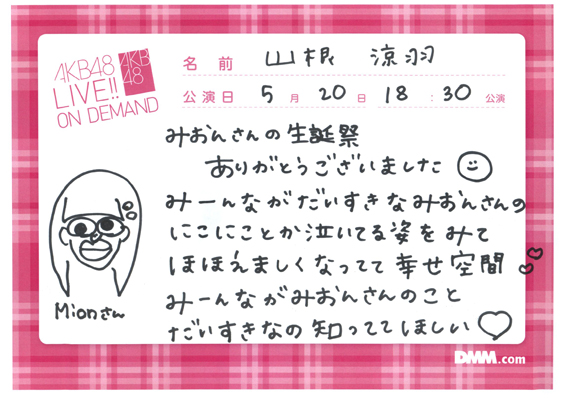 AKB48
LIVE!!
ON DEMAND
AKB
48
名前 山根 涼羽
公演日 5月20日 18:30公演
みおんさんの生誕祭
ありがとうございました
みーんながだいすきなみおんさんの
にこにことか泣いてる姿をみて
ほほえましくなってて幸せ空間
みーんながみおんさんのこと
だいすきなの知っててほしい
Mionさん
DMM.com